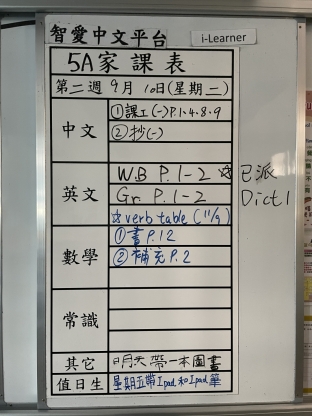 智愛中文平台
i-Learner
5A家課表
第二週 9月10日(星期二)
中文
①課工(一)P.1-4.8-9
②抄(一)
英文
W.B P.1-2 ☆已派
Gr. P.1-2 Dict.1
☆verb table (11/9)
數學
①書P.12
②補充P.2
常識
其它
明天帶一本圖書
值日生
星期五帶Ipad和Ipad筆